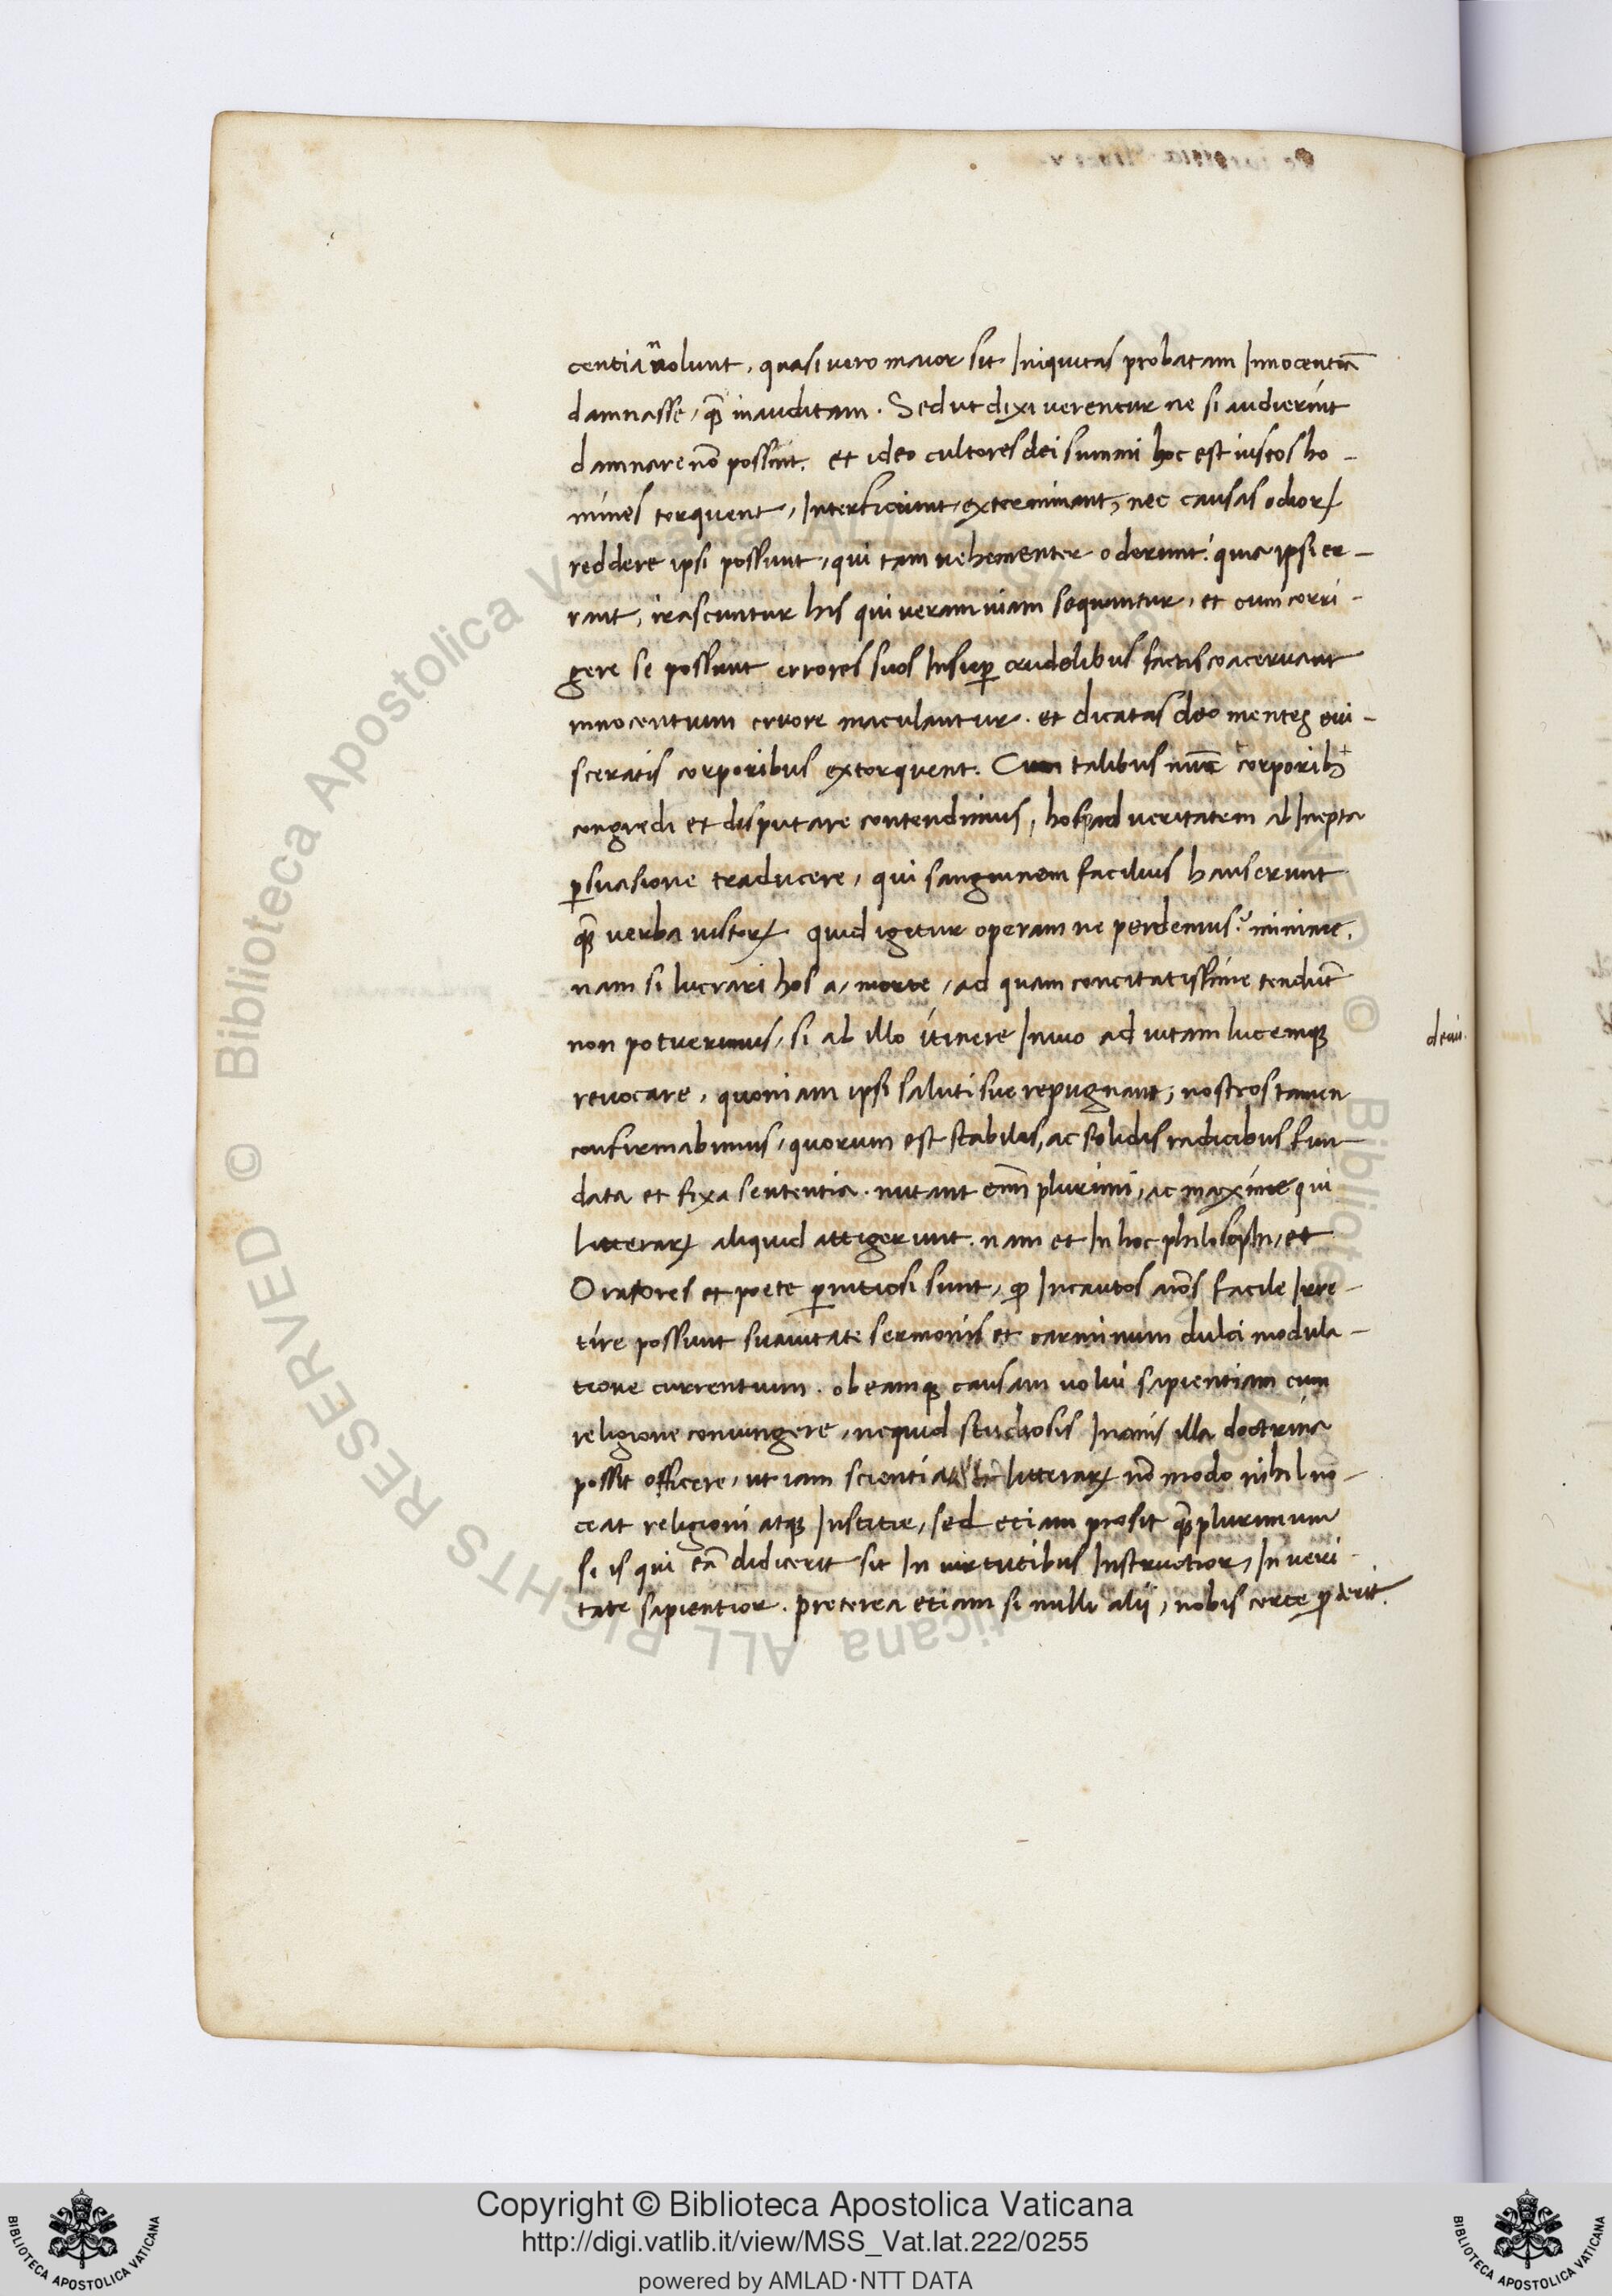 centiã nolunt, quasi uero maior sit Iniquitas probatam Innocentiã
damnasse, qᷓ inauditam. Sed ut dixi verentur ne si audierint
damnare nõ possint. et ideo cultores dei summi hoc est iustos ho-
mines torquent, Interficiunt, exterminant, nec causas odioꝝ
reddere ipsi possunt, qui tam uehementer oderunt: quia ipsi er-
rant, irascuntur his qui veram uiam sequuntur, et cum corri-
gere se possunt errores suos Insuꝑ crudelibus factis coaceruant
innocentium cruore maculantur. et dicatas deo mentes eui-
sceratis corporibus extorquent. Cum talibus nunc corporibꝫ
congredi et disputare contendimus, hos ad ueritatem ab Inepta
ꝑsuasione traducere, qui sanguinem facilius hauserunt
qᷓ uerba iustoꝝ quid igitur operam ne perdemus? minime.
nam si lucrari hos a, morte, ad quam concitatissime tendũt
non potuerimus, si ab illo itinere Inuio ad uitam lucemqꝫ
deuii.
reuocare, quoniam ipsi saluti sue repugnant, nostros tamen
confirmabimus, quorum est stabilis, ac solidis radicibus fun-
data et fixa sententia. nutant em̃ plurimi, ac maxime qui
litteraꝝ aliquid attigerunt. nam et In hoc philosophi, et
Oratores et poete ꝑnitiosi sunt, ꝙ Incautos aĩos facile Irre-
tire possunt suauitate sermonis et carminum dulci modula-
tione currentium. ob eamqꝫ causam uolui sapientiam cum
religione coniungere, nequid studiosis Inanis illa doctrina
possit officere, ut iam scientia litteraꝝ nõ modo nihil no-
ceat religioni atqꝫ Iustitie, sed etiam prosit qᷓ plurimum
si is qui eã didicerit sit In uirtutibus Instructior, In ueri-
tate sapientior. preterea etiam si nulli alii, nobis certe ꝓderit.
Copyright © Biblioteca Apostolica Vaticana
http://digi.vatlib.it/view/MSS_Vat.lat.222/0255
powered by AMLAD·NTT DATA
BIBLIOTECA APOSTOLICA VATICANA
BIBLIOTECA APOSTOLICA VATICANA